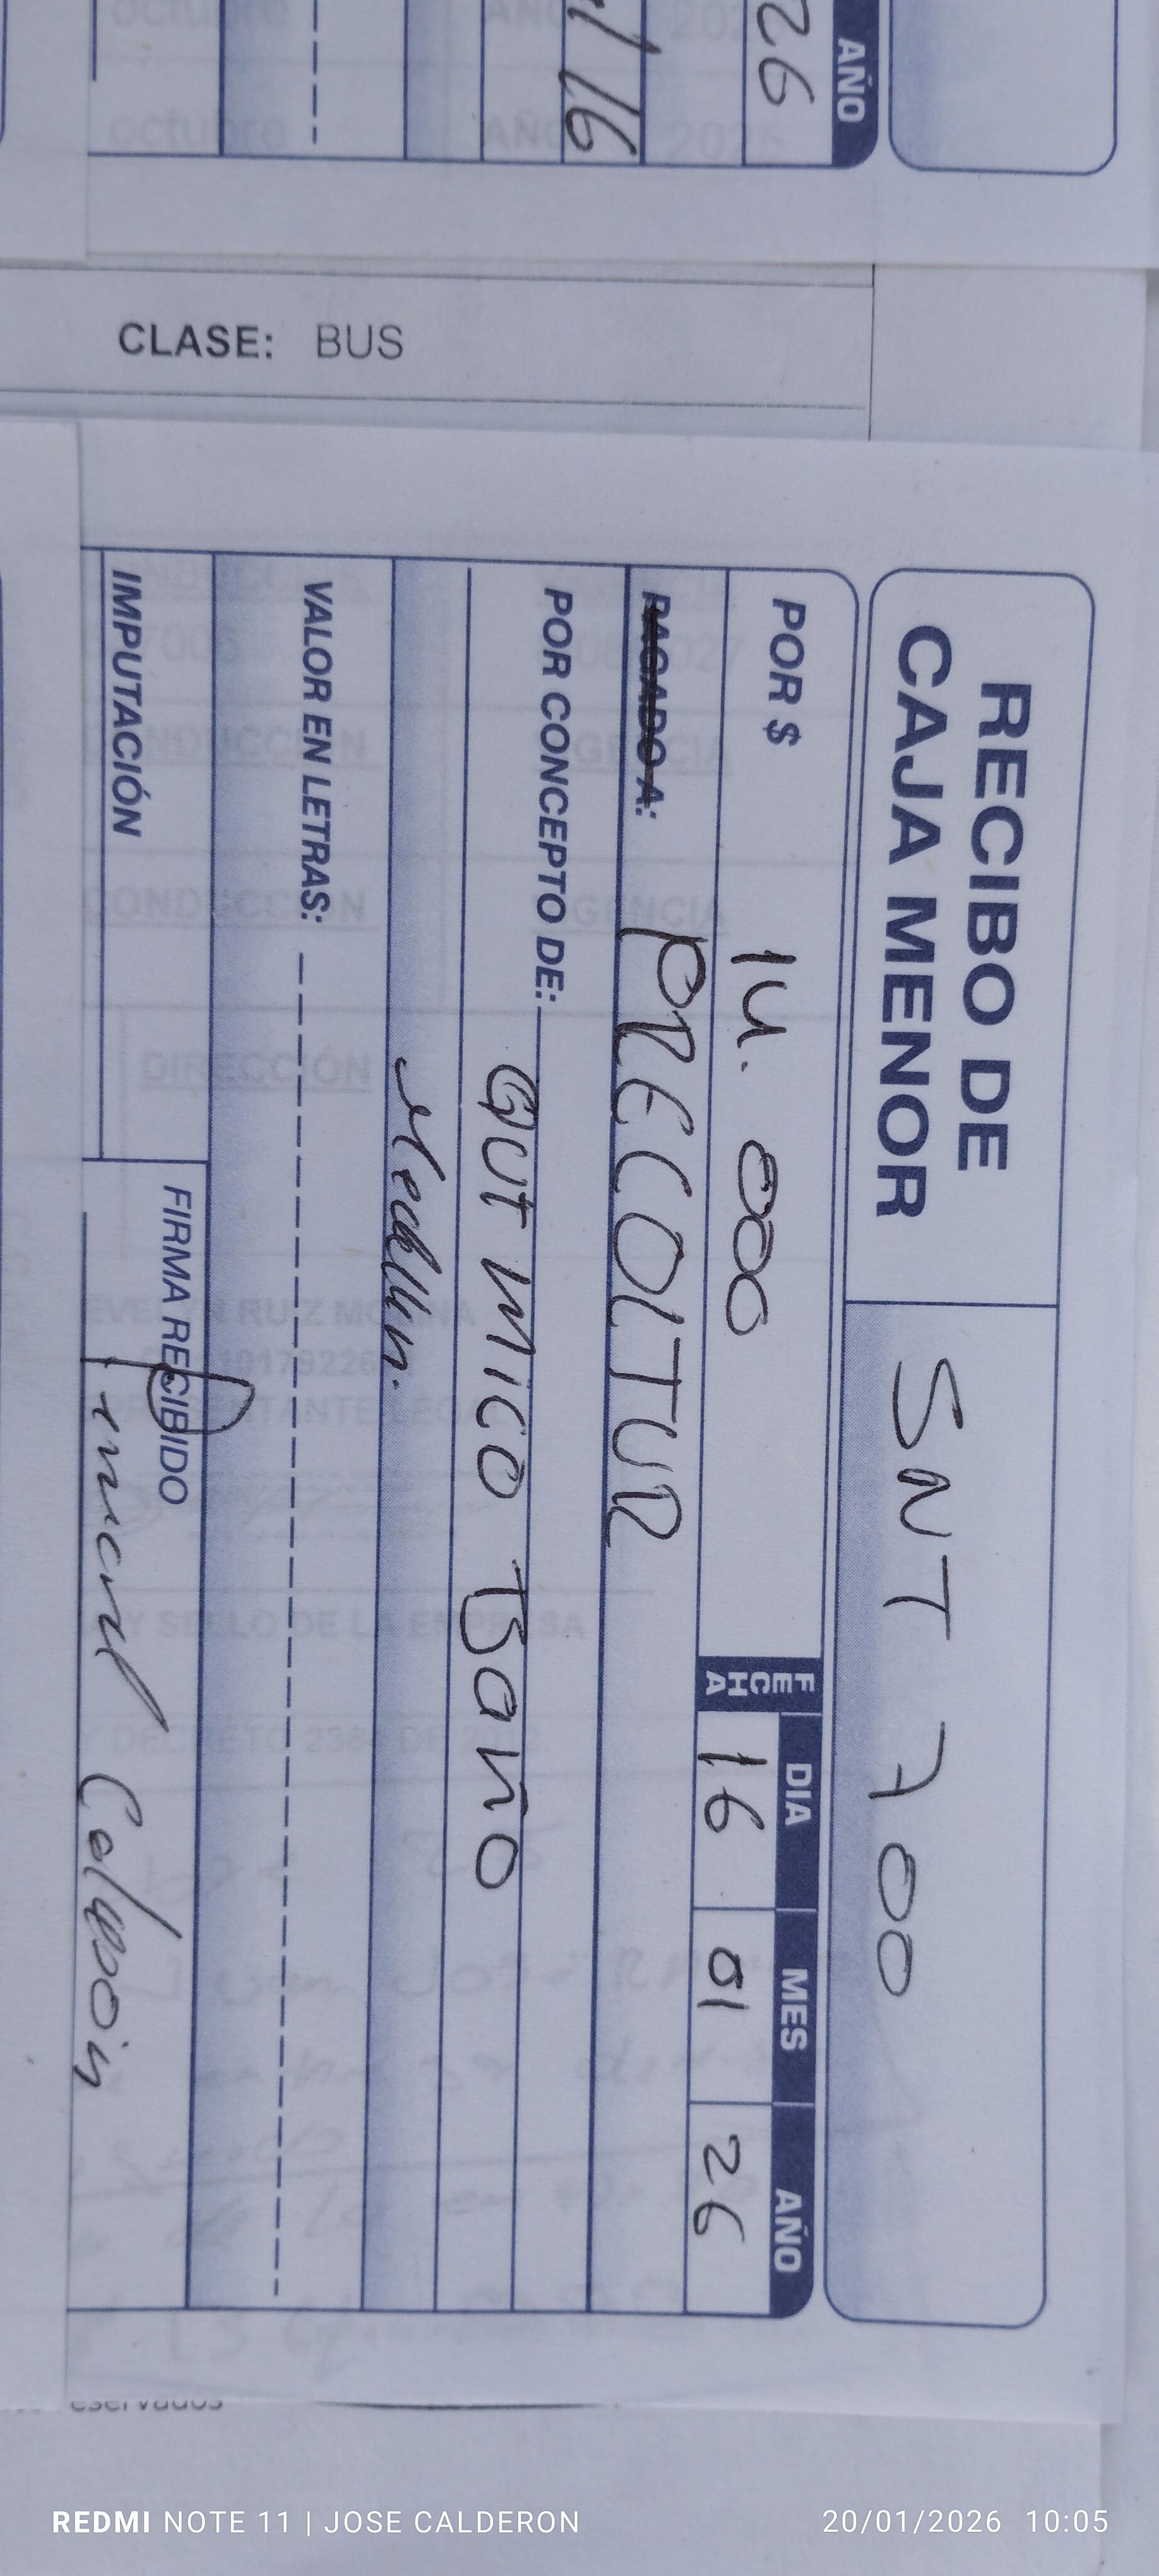 26
AÑO
1/16
CLASE: BUS
RECIBO DE
CAJA MENOR
SNT 700
POR $ 14.000
FECHA
DIA MES AÑO
16 01 26
PAGADO A: PRECOLTUR
POR CONCEPTO DE:
QUIMICO BAÑO
Medellin.
VALOR EN LETRAS:
IMPUTACIÓN
FIRMA RECIBIDO
Calderon
REDMI NOTE 11 | JOSE CALDERON
20/01/2026 10:05